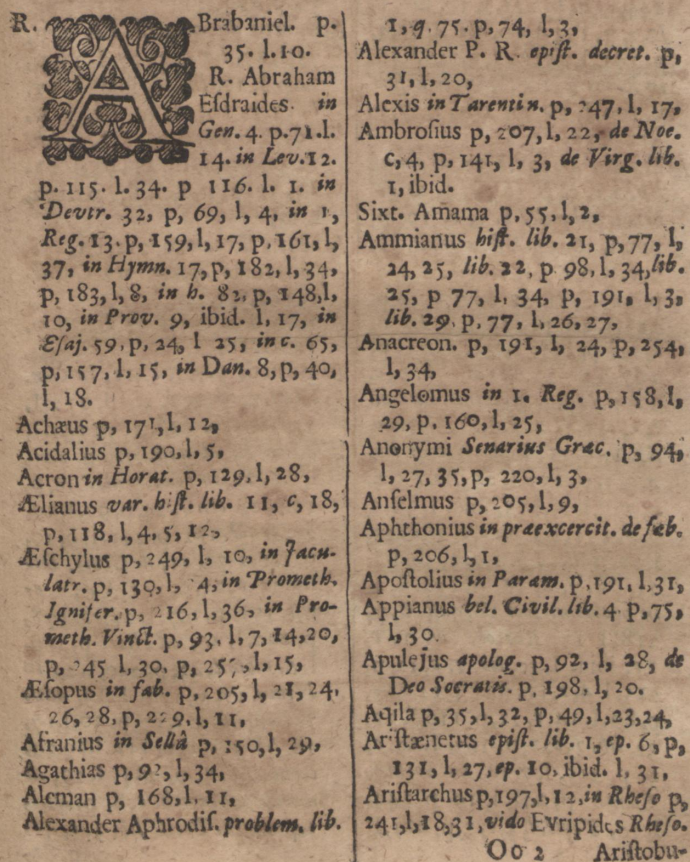 R. ABrabaniel. p.
35. l.10.
R. Abraham
Eſdraides in
Gen. 4. p.71.l.
14. in Lev.12.
p. 115. l. 34. p 116. l. 1. in
Devtr. 32, p, 69, l, 4, in 1,
Reg. 13. p, 159, l, 17, p, 161, l,
37, in Hymn. 17, p, 182, l, 34,
p, 183, l, 8, in h. 82, p, 148, l,
10, in Prov. 9, ibid. l, 17, in
Eſaj. 59. p, 24, l 25, in c. 65,
p, 157, l, 15, in Dan. 8, p, 40,
l, 18.
Achæus p, 171, l, 12,
Acidalius p, 190, l, 5,
Acron in Horat. p, 129, l, 28,
Ælianus var. hiſt. lib. 11, c, 18,
p, 118, l, 4, 5, 12,
Æſchylus p, 249, l, 10, in Jacu-
latr. p, 130, l, 4, in Prometh.
Ignifer. p, 216, l, 36, in Pro-
meth. Vinct. p, 93, l, 7, 14, 20,
p, 245 l, 30, p, l, 15,
Æſopus in fab. p, 205, l, 21, 24,
26, 28, p, 229, l, 11,
Afranius in Sellâ p, 150, l, 29,
Agathias p, 92, l, 34,
Alcman p, 168, l. 11,
Alexander Aphrodiſ. problem. lib.
1, q. 75. p, 74, l, 3,
Alexander P. R. epiſt. decret. p,
31, l, 20,
Alexis in Tarentin. p, 247, l, 17,
Ambroſius p, 207, l, 22, de Noe.
c, 4, p, 141, l, 3, de Virg. lib.
1, ibid.
Sixt. Amama p, 55, l, 2,
Ammianus hiſt. lib. 21, p, 77, l,
24, 25, lib. 22, p 98, l, 34, lib.
25, p 77, l, 34, p, 191, l, 3,
lib. 29. p, 77, l, 26, 27,
Anacreon. p, 191, l, 24, p, 254,
l, 34,
Angelomus in 1. Reg. p, 158, l,
29, p. 160, l, 25,
Anonymi Senarius Græc. p, 94,
l, 27, 35, p, 220, l, 3,
Anſelmus p, 205, l, 9,
Aphthonius in præexcercit. de fab.
p, 206, l, 1,
Apoſtolius in Param. p, 191, l, 31,
Appianus bel. Civil. lib. 4. p, 75,
l, 30.
Apulejus apolog. p, 92, l, 28, de
Deo Socratis. p, 198, l, 20.
Aqila p, 35, l, 32, p, 49, l, 23, 24,
Ariſtænetus epiſt. lib. 1, ep. 6, p,
131, l, 27, ep. 10, ibid. l, 31,
Ariſtarchus p, 197, l, 12, in Rheſo p,
241, l, 18, 31, vido Evripides Rheſo.
Oo 2 Ariſtobu-